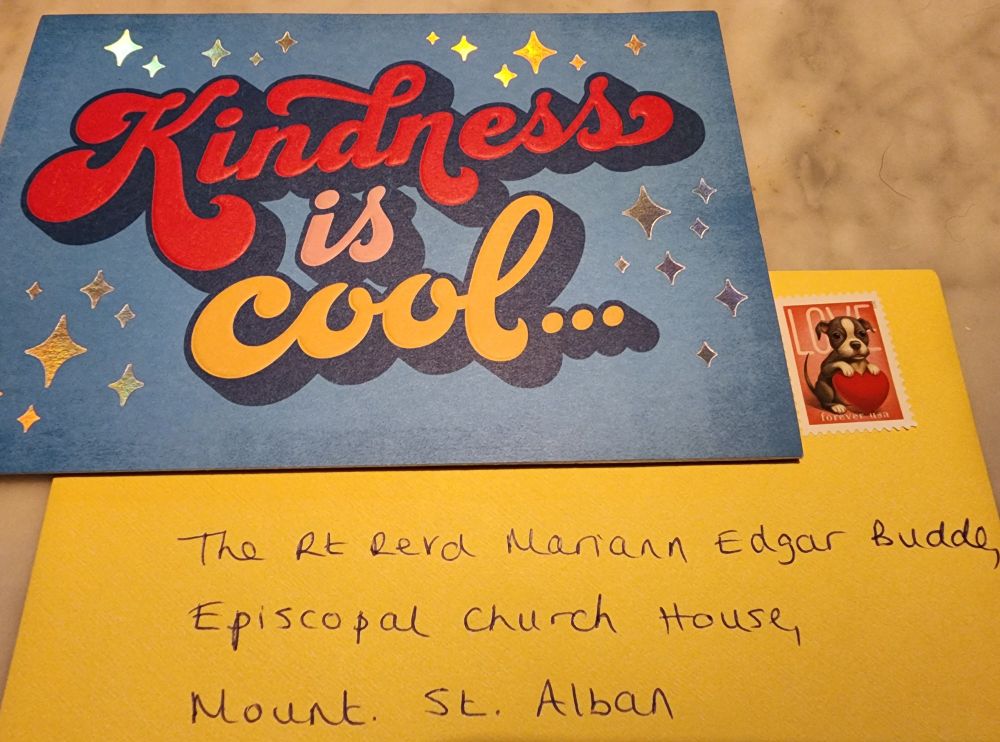 Kindness
is
cool...
LOVE
forever usa
The Rt Revd Mariann Edgar Budde,
Episcopal Church House,
Mount. St. Alban